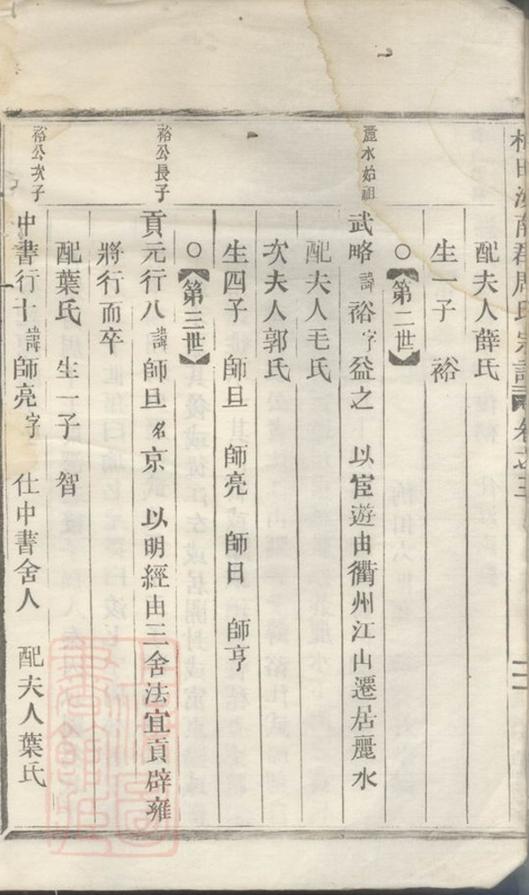 周氏宗譜
配夫人薛氏
生一子 裕
○【第二世】
麗水始祖
武略 諱 裕 字 益之 以宦遊由衢州江山遷居麗水
配夫人毛氏
次夫人郭氏
生四子 師旦 師亮 師日 師亨
○【第三世】
裕公長子
貢元行八 諱 師旦 名 京 以明經由三舍法宜貢辟雍
將行而卒
配葉氏 生一子 智
裕公次子
中書行十 諱 師亮 字 仕中書舍人 配夫人葉氏